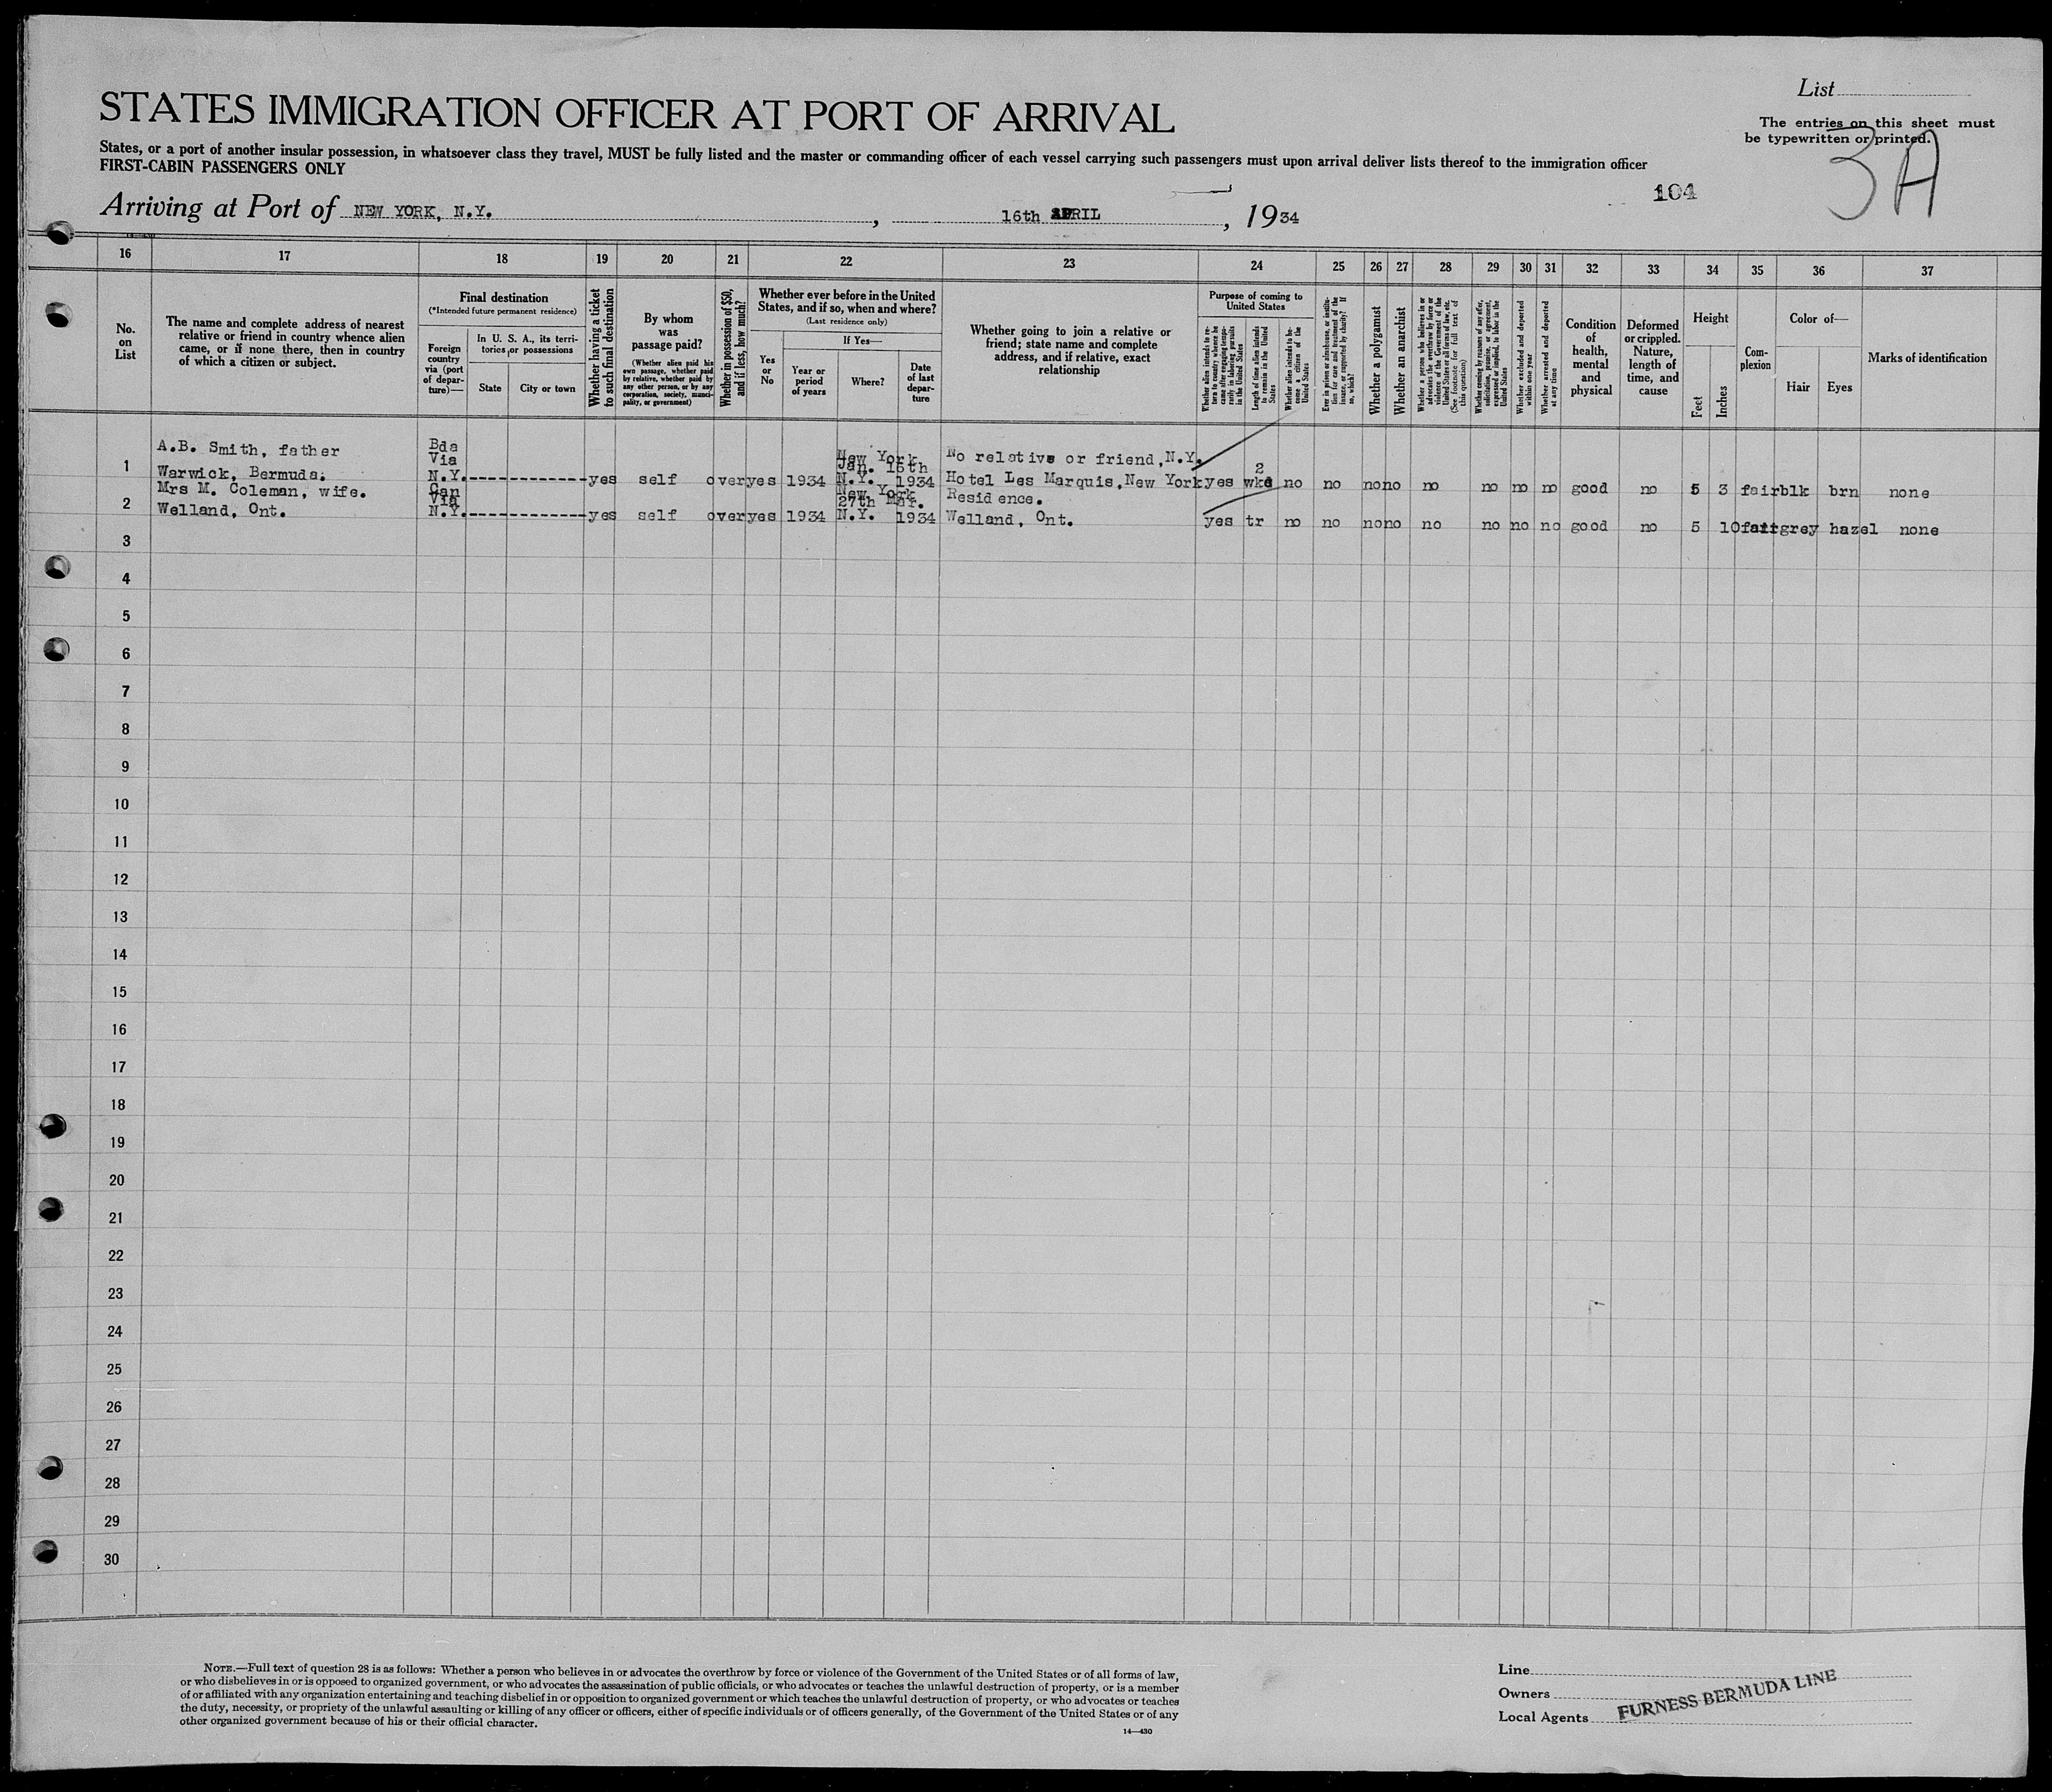 List
STATES IMMIGRATION OFFICER AT PORT OF ARRIVAL
The entries on this sheet must
be typewritten or printed.
3A
States, or a port of another insular possession, in whatsoever class they travel, MUST be fully listed and the master or commanding officer of each vessel carrying such passengers must upon arrival deliver lists thereof to the immigration officer
FIRST-CABIN PASSENGERS ONLY
104
Arriving at Port of NEW YORK, N.Y. , 16th APRIL , 1934
16 17 18 19 20 21 22 23 24 25 26 27 28 29 30 31 32 33 34 35 36 37
No.
on
List
The name and complete address of nearest
relative or friend in country whence alien
came, or if none there, then in country
of which a citizen or subject.
Final destination
(*Intended future permanent residence)
Foreign
country
via (port
of depar-
ture)—
In U. S. A., its terri-
tories or possessions
State
City or town
Whether having a ticket
to such final destination
By whom
was
passage paid?
(Whether alien paid his
own passage, whether paid
by relative, whether paid by
any other person, or by any
corporation, society, munici-
pality, or government)
Whether in possession of $50,
and if less, how much?
Whether ever before in the United
States, and if so, when and where?
(Last residence only)
Yes
or
No
If Yes—
Year or
period
of years
Where?
Date
of last
depar-
ture
Whether going to join a relative or
friend; state name and complete
address, and if relative, exact
relationship
Purpose of coming to
United States
Whether alien intends to re-
turn to country whence he
came after engaging tempo-
rarily in laboring pursuits
in the United States
Length of time alien intends
to remain in the United
States
Whether alien intends to be-
come a citizen of the
United States
Ever in prison or almshouse, or institu-
tion for care and treatment of the
insane, or supported by charity? If
so, which?
Whether a polygamist
Whether an anarchist
Whether a person who believes in or
advocates the overthrow by force or
violence of the Government of the
United States or all forms of law, etc.
(See footnote for full text of
this question)
Whether coming by reasons of any offer,
solicitation, promise, or agreement,
expressed or implied, to labor in the
United States
Whether excluded and deported
within one year
Whether arrested and deported
at any time
Condition
of
health,
mental
and
physical
Deformed
or crippled.
Nature,
length of
time, and
cause
Height
Feet
Inches
Com-
plexion
Color of—
Hair
Eyes
Marks of identification
A.B. Smith, father Bda Via New York Jan. 15th No relative or friend, N.Y.
1 Warwick, Bermuda. N.Y.------------- yes self over yes 1934 N.Y. 1934 Hotel Les Marquis, New York yes 2 wks no no no no no no no no good no 5 3 fair blk brn none
Mrs M. Coleman, wife. Can Via New York 27th Mar. Residence.
2 Welland, Ont. N.Y.------------- yes self over yes 1934 N.Y. 1934 Welland, Ont. yes tr no no no no no no no no good no 5 10 fair grey hazel none
3
4
5
6
7
8
9
10
11
12
13
14
15
16
17
18
19
20
21
22
23
24
25
26
27
28
29
30
NOTE.—Full text of question 28 is as follows: Whether a person who believes in or advocates the overthrow by force or violence of the Government of the United States or of all forms of law,
or who disbelieves in or is opposed to organized government, or who advocates the assassination of public officials, or who advocates or teaches the unlawful destruction of property, or is a member
of or affiliated with any organization entertaining and teaching disbelief in or opposition to organized government or which teaches the unlawful destruction of property, or who advocates or teaches
the duty, necessity, or propriety of the unlawful assaulting or killing of any officer or officers, either of specific individuals or of officers generally, of the Government of the United States or of any
other organized government because of his or their official character.
14—430
Line
Owners
Local Agents
FURNESS BERMUDA LINE